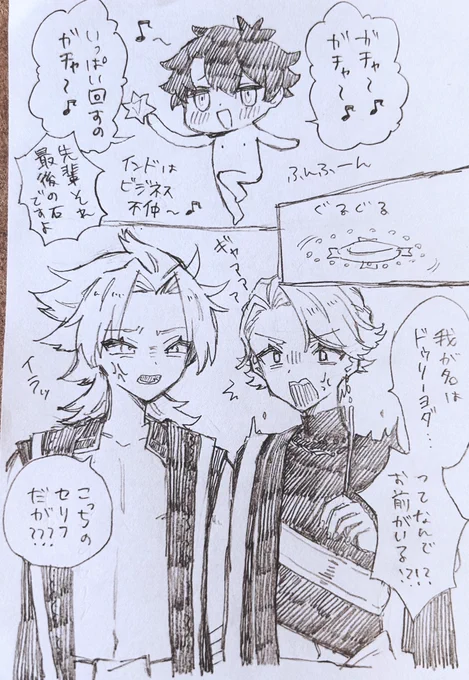 ガチャ〜♪
ガチャ〜♪
いっぱい回すの
ガチャ〜♪
♪〜
インドは
ビジネス
不仲〜♪
ふんふーん
先輩それ
最後の石
ですよ
ぐるぐる
ギャアアア
我が名は
ドゥリーヨダ…
ってなんで!?
お前がいる!?
イラッ
こっちの
セリフ
だが???